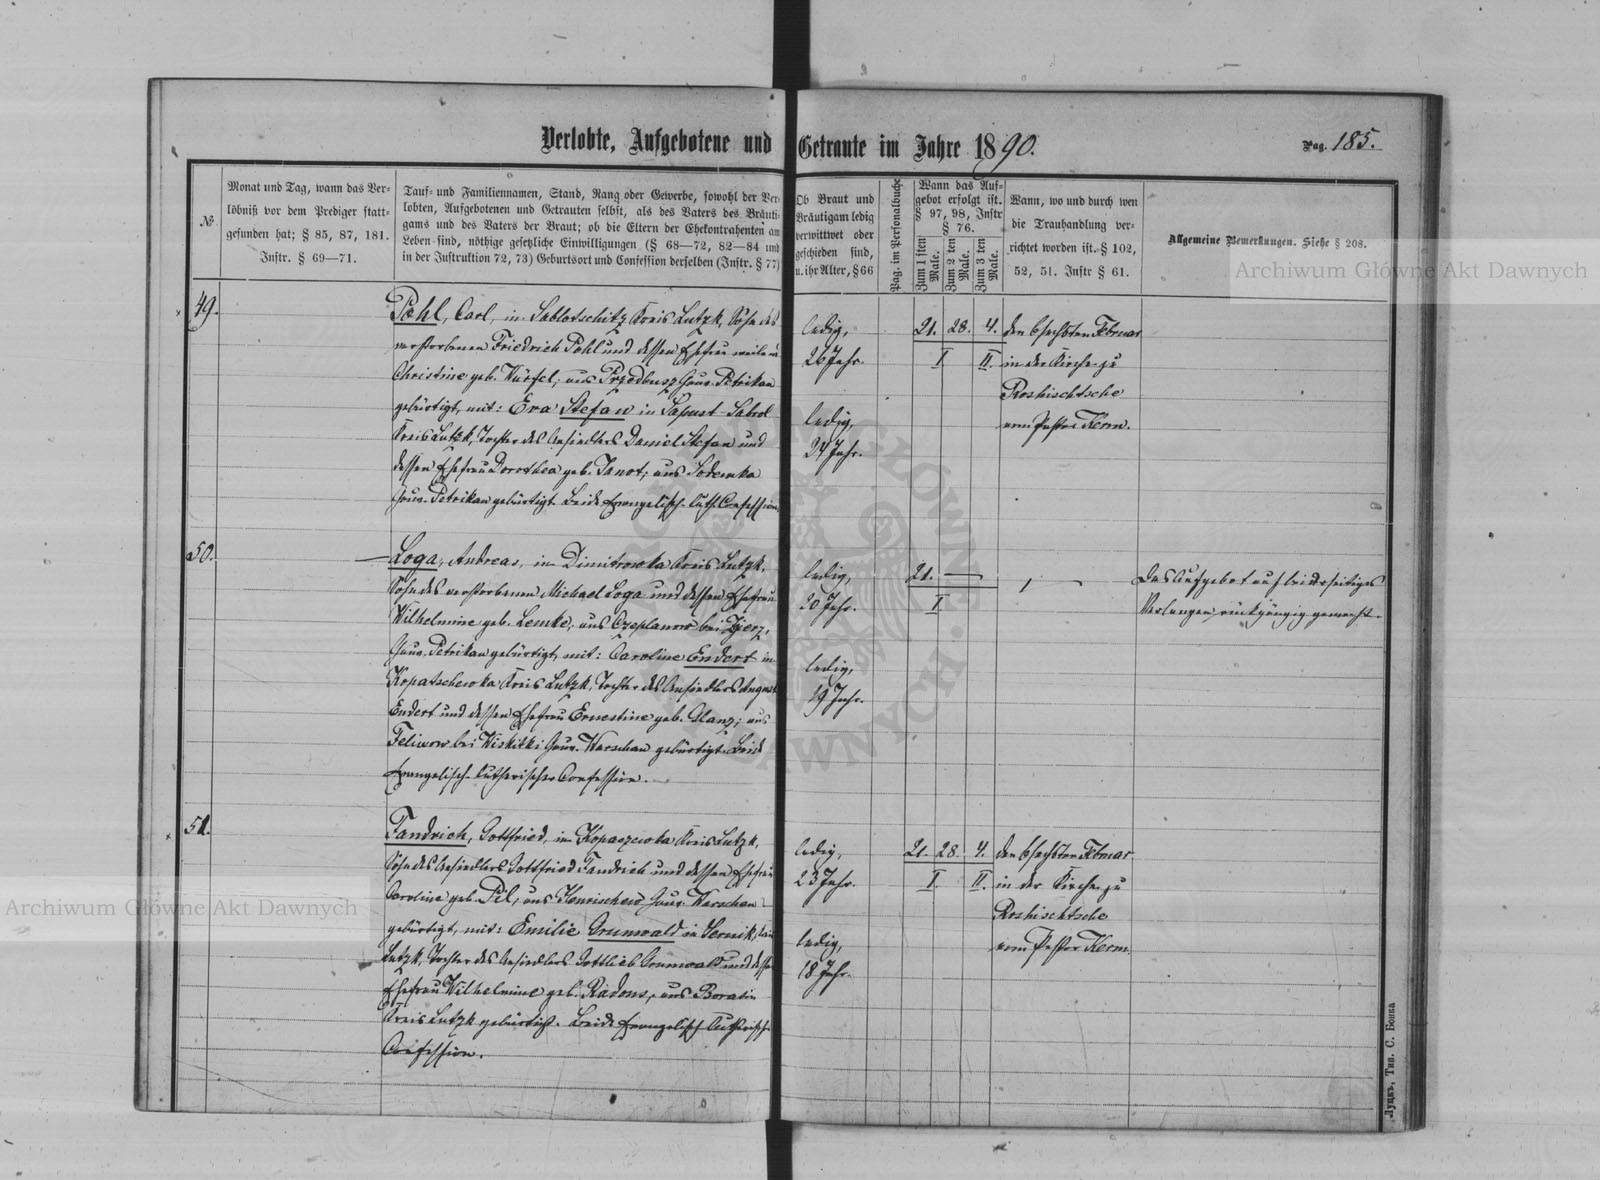 Verlobte, Aufgebotene und Getraute im Jahre 1890.
Pag. 185.
№
Monat und Tag, wann das Ver-
löbniß vor dem Prediger statt-
gefunden hat; § 85, 87, 181.
Instr. § 69—71.
Tauf- und Familiennamen, Stand, Rang oder Gewerbe, sowohl der Ver-
lobten, Aufgebotenen und Getrauten selbst, als des Vaters des Bräuti-
gams und des Vaters der Braut; ob die Eltern der Ehekontrahenten am
Leben sind, nöthige gesetzliche Einwilligungen (§ 68—72, 82—84 und
in der Instruktion 72, 73) Geburtsort und Confession derselben (Instr. § 77)
Ob Braut und
Bräutigam ledig
verwittwet oder
geschieden sind,
u. ihr Alter, § 66
Pag. im Personalbuche
Wann das Auf-
gebot erfolgt ist.
§ 97, 98, Instr
§ 76.
Zum 1 sten Male.
Zum 2 ten Male.
Zum 3 ten Male.
Wann, wo und durch wen
die Trauhandlung ver-
richtet worden ist. § 102,
52, 51. Instr § 61.
Allgemeine Bemerkungen. Siehe § 208.
49.
Pohl, Carl, in Sablotschitz Kreis Lutzk, Sohn des
verstorbenen Friedrich Pohl und dessen Ehefrau weiland
Christine geb. Würfel; aus Przedbusz Gouv. Petrikau
gebürtigt, mit: Eva Stefan in Sapust-Sabrol
Kreis Lutzk, Tochter des Ansiedlers Daniel Stefan und
dessen Ehefrau Dorothea geb. Janot; aus
Gouv. Petrikau gebürtigt. Beide Evangelisch-Luth. Confession
ledig,
26 Jahr.
ledig,
Jahr.
21. 28. 4.
I II.
den 6 sechsten Februar
in der Kirche zu
Roshischtsche
vom Pastor Kerm.
50.
Loga, Andreas, in Dimitrowka Kreis Lutzk,
Sohn des verstorbenen Michael Loga und dessen Ehefrau
Wilhelmine geb. Lemke; aus Czeplanow bei Zgierz,
Gouv. Petrikau gebürtigt, mit: Caroline Endert in
Kopatschewka Kreis Lutzk, Tochter des Ansiedlers August
Endert und dessen Ehefrau Ernestine geb. Glanz; aus
Feliwow bei Wiskitki Gouv. Warschau gebürtigt. Beide
Evangelisch-Lutherischer Confession.
ledig,
20 Jahr.
ledig,
19 Jahr.
21. —
I
Das Aufgebot auf beiderseitiges
Verlangen rückgängig gemacht.
51.
Fandrich, Gottfried, in Kopaczewka Kreis Lutzk,
Sohn des Ansiedlers Gottfried Fandrich und dessen Ehefrau
Caroline geb. Pel, aus Henrischew Gouv. Warschau
gebürtigt, mit: Emilie Grunwald in Sernik, Kreis
Lutzk, Tochter des Ansiedlers Gottlieb Grunwald und dessen
Ehefrau Wilhelmine geb. Radons, aus Boratin
Kreis Lutzk gebürtigt. Beide Evangelisch-Lutherischer
Confession.
ledig,
23 Jahr.
ledig,
18 Jahr.
21. 28. 4.
I. II.
den 6 sechsten Februar
in der Kirche zu
Roshischtsche
vom Pastor Kerm.
Луцкъ, Тип. С. Бонка
Archiwum Główne Akt Dawnych
Archiwum Główne Akt Dawnych